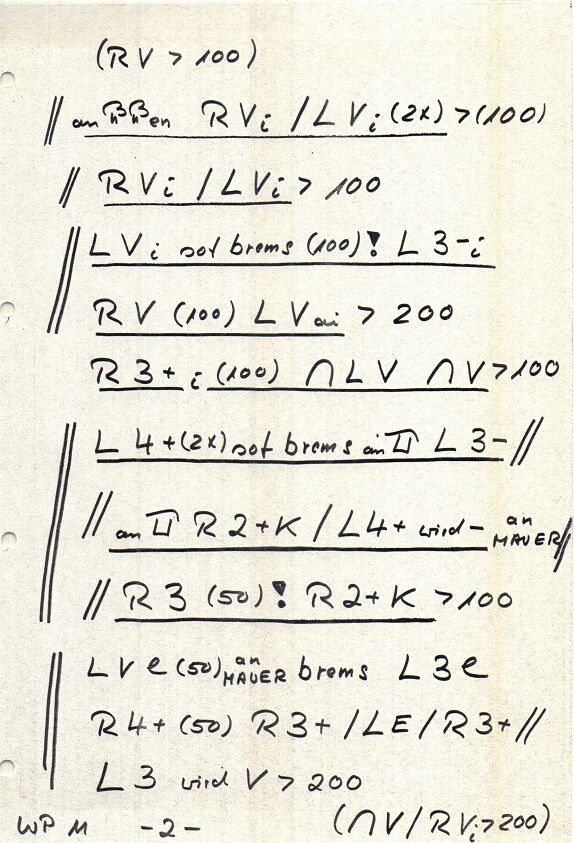 (RV > 100)
// an en RVi / LVi (2x) > (100)
// RVi / LVi > 100
// LVi sof brems (100)! L 3-i
RV (100) LV > 200
R 3+ i (100) ∩ LV ∩ V > 100
// L 4+ (2x) sof brems L 3- //
// an R 2+ K / L4+ wird - an MAUER //
// R 3 (50)! R 2+ K > 100
// LVe (50) an MAUER brems L 3e
R4+ (50) R3+ / LE / R3+ //
L 3 wird V > 200
WP 11 - 2 - (∩V / RVi > 200)